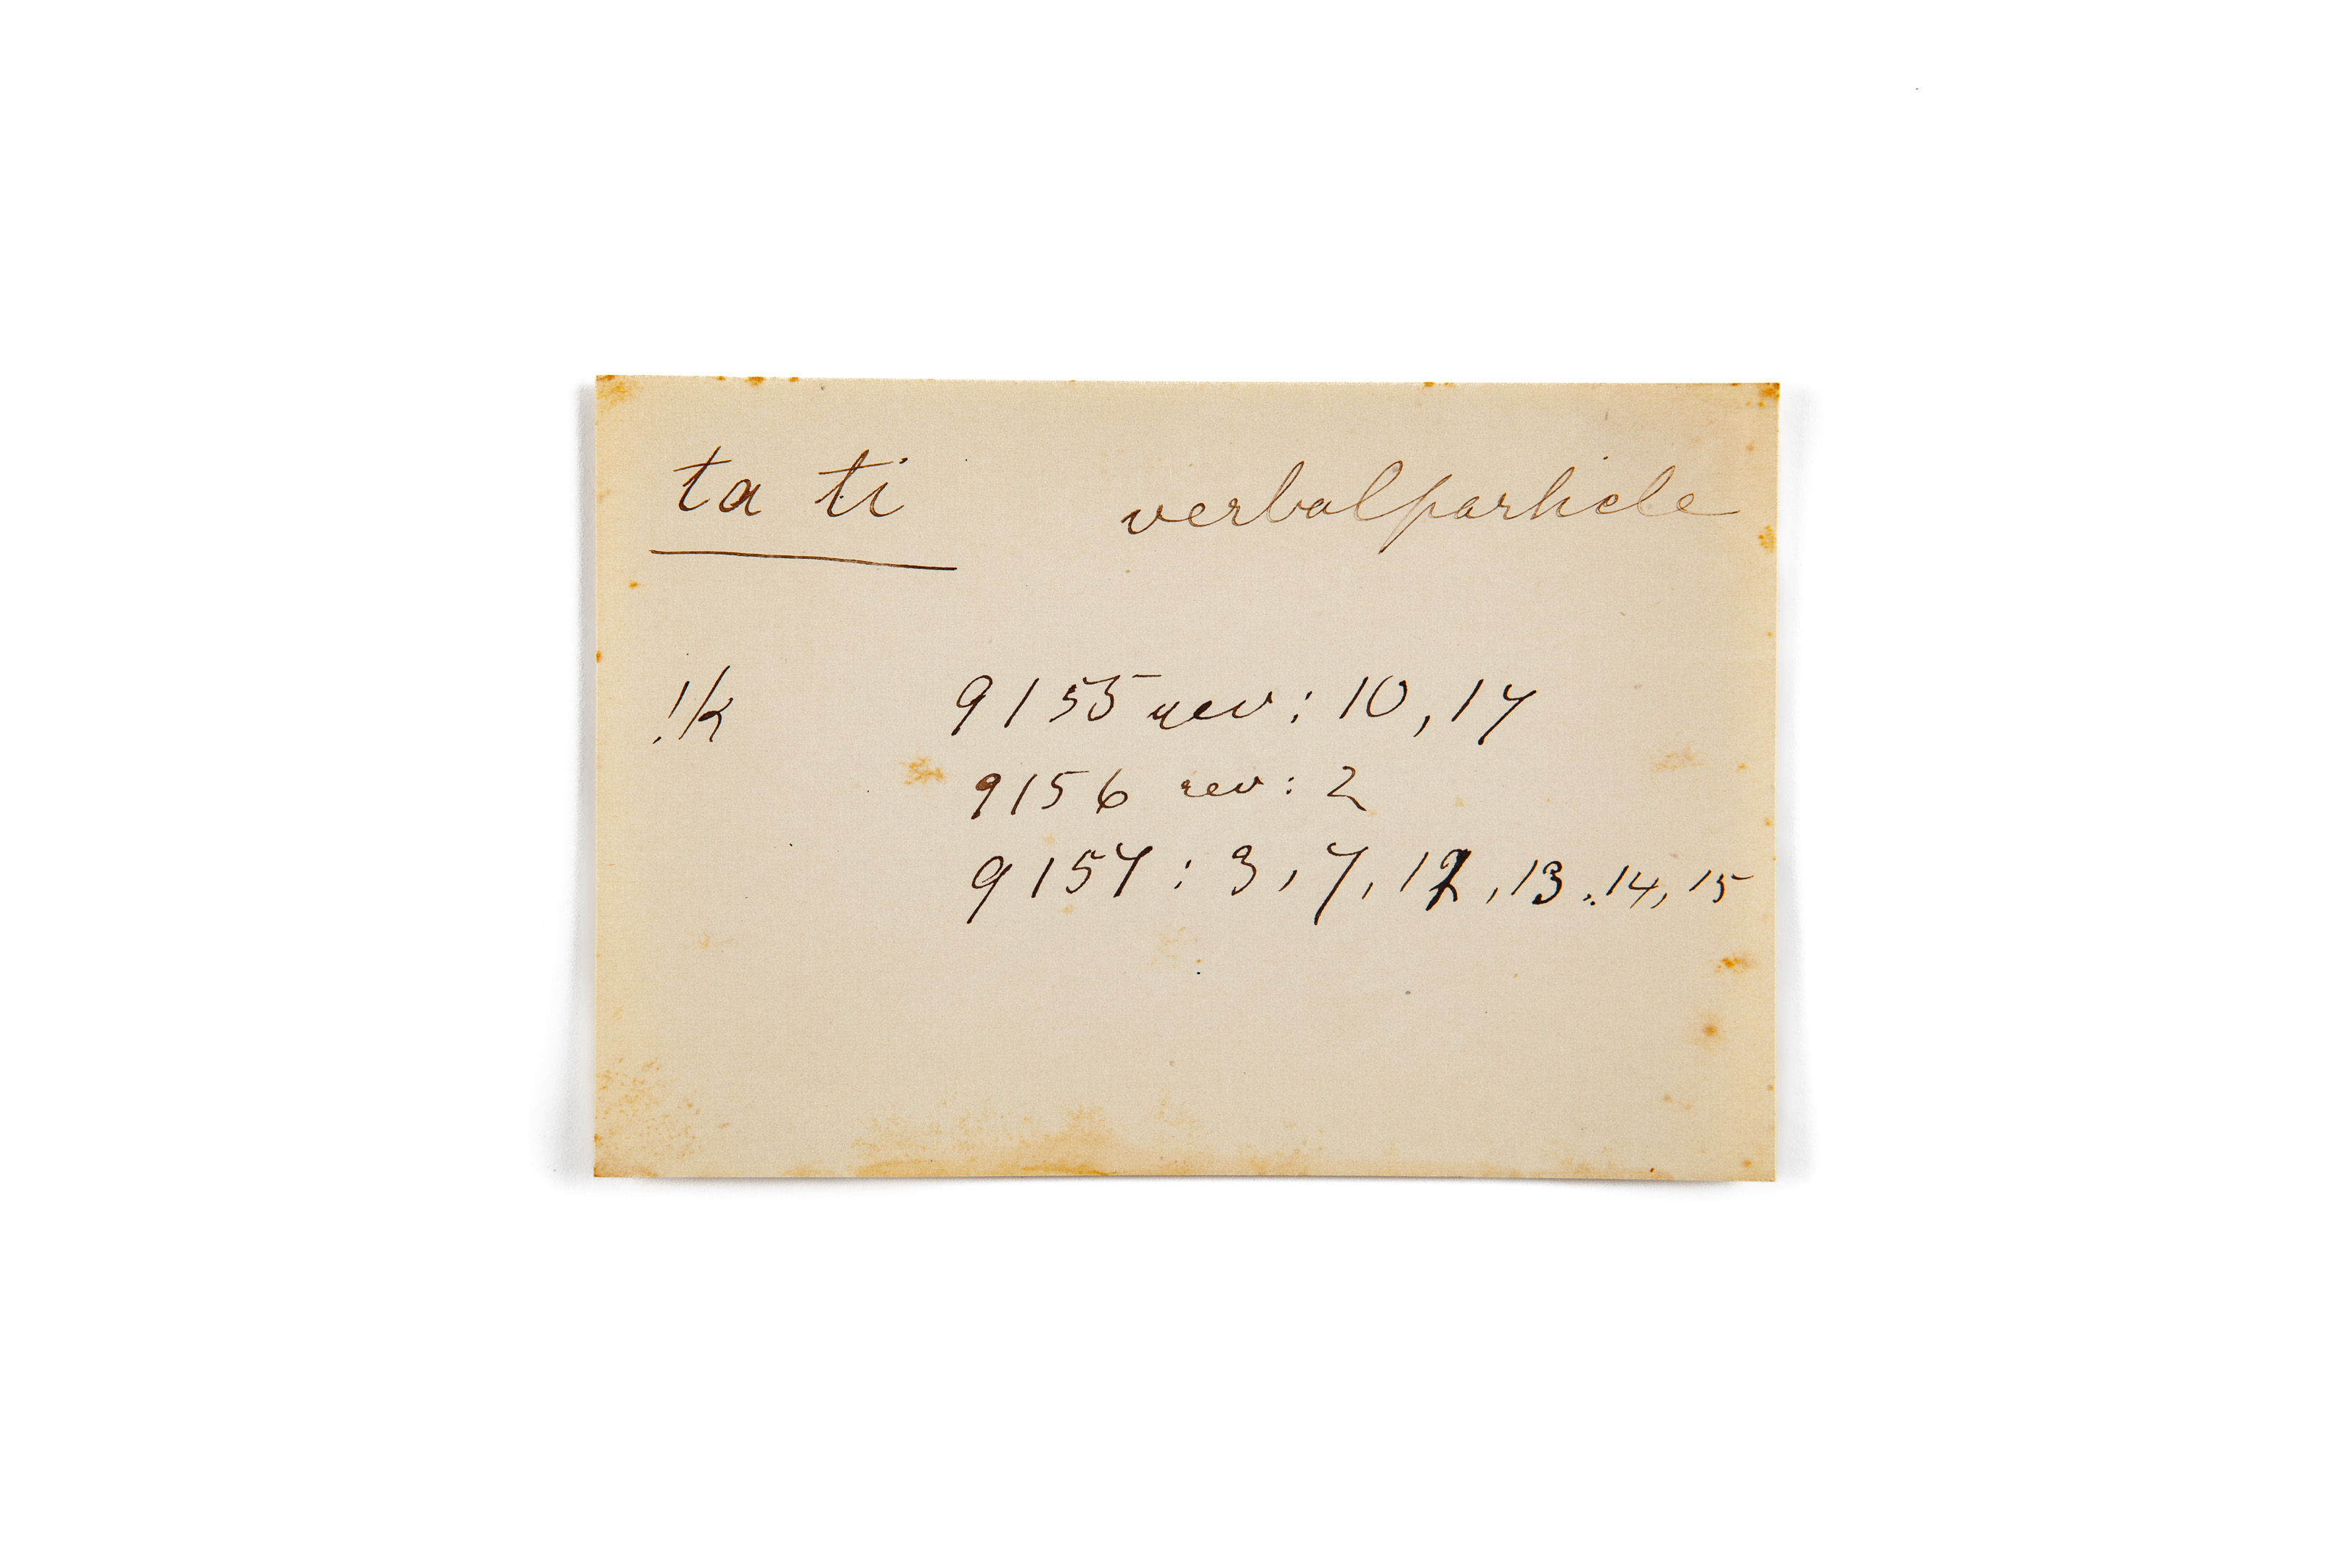 ta ti verbalparticle
!k 9155 rev: 10, 17
9156 rev: 2
9157: 3, 7, 12, 13, 14, 15